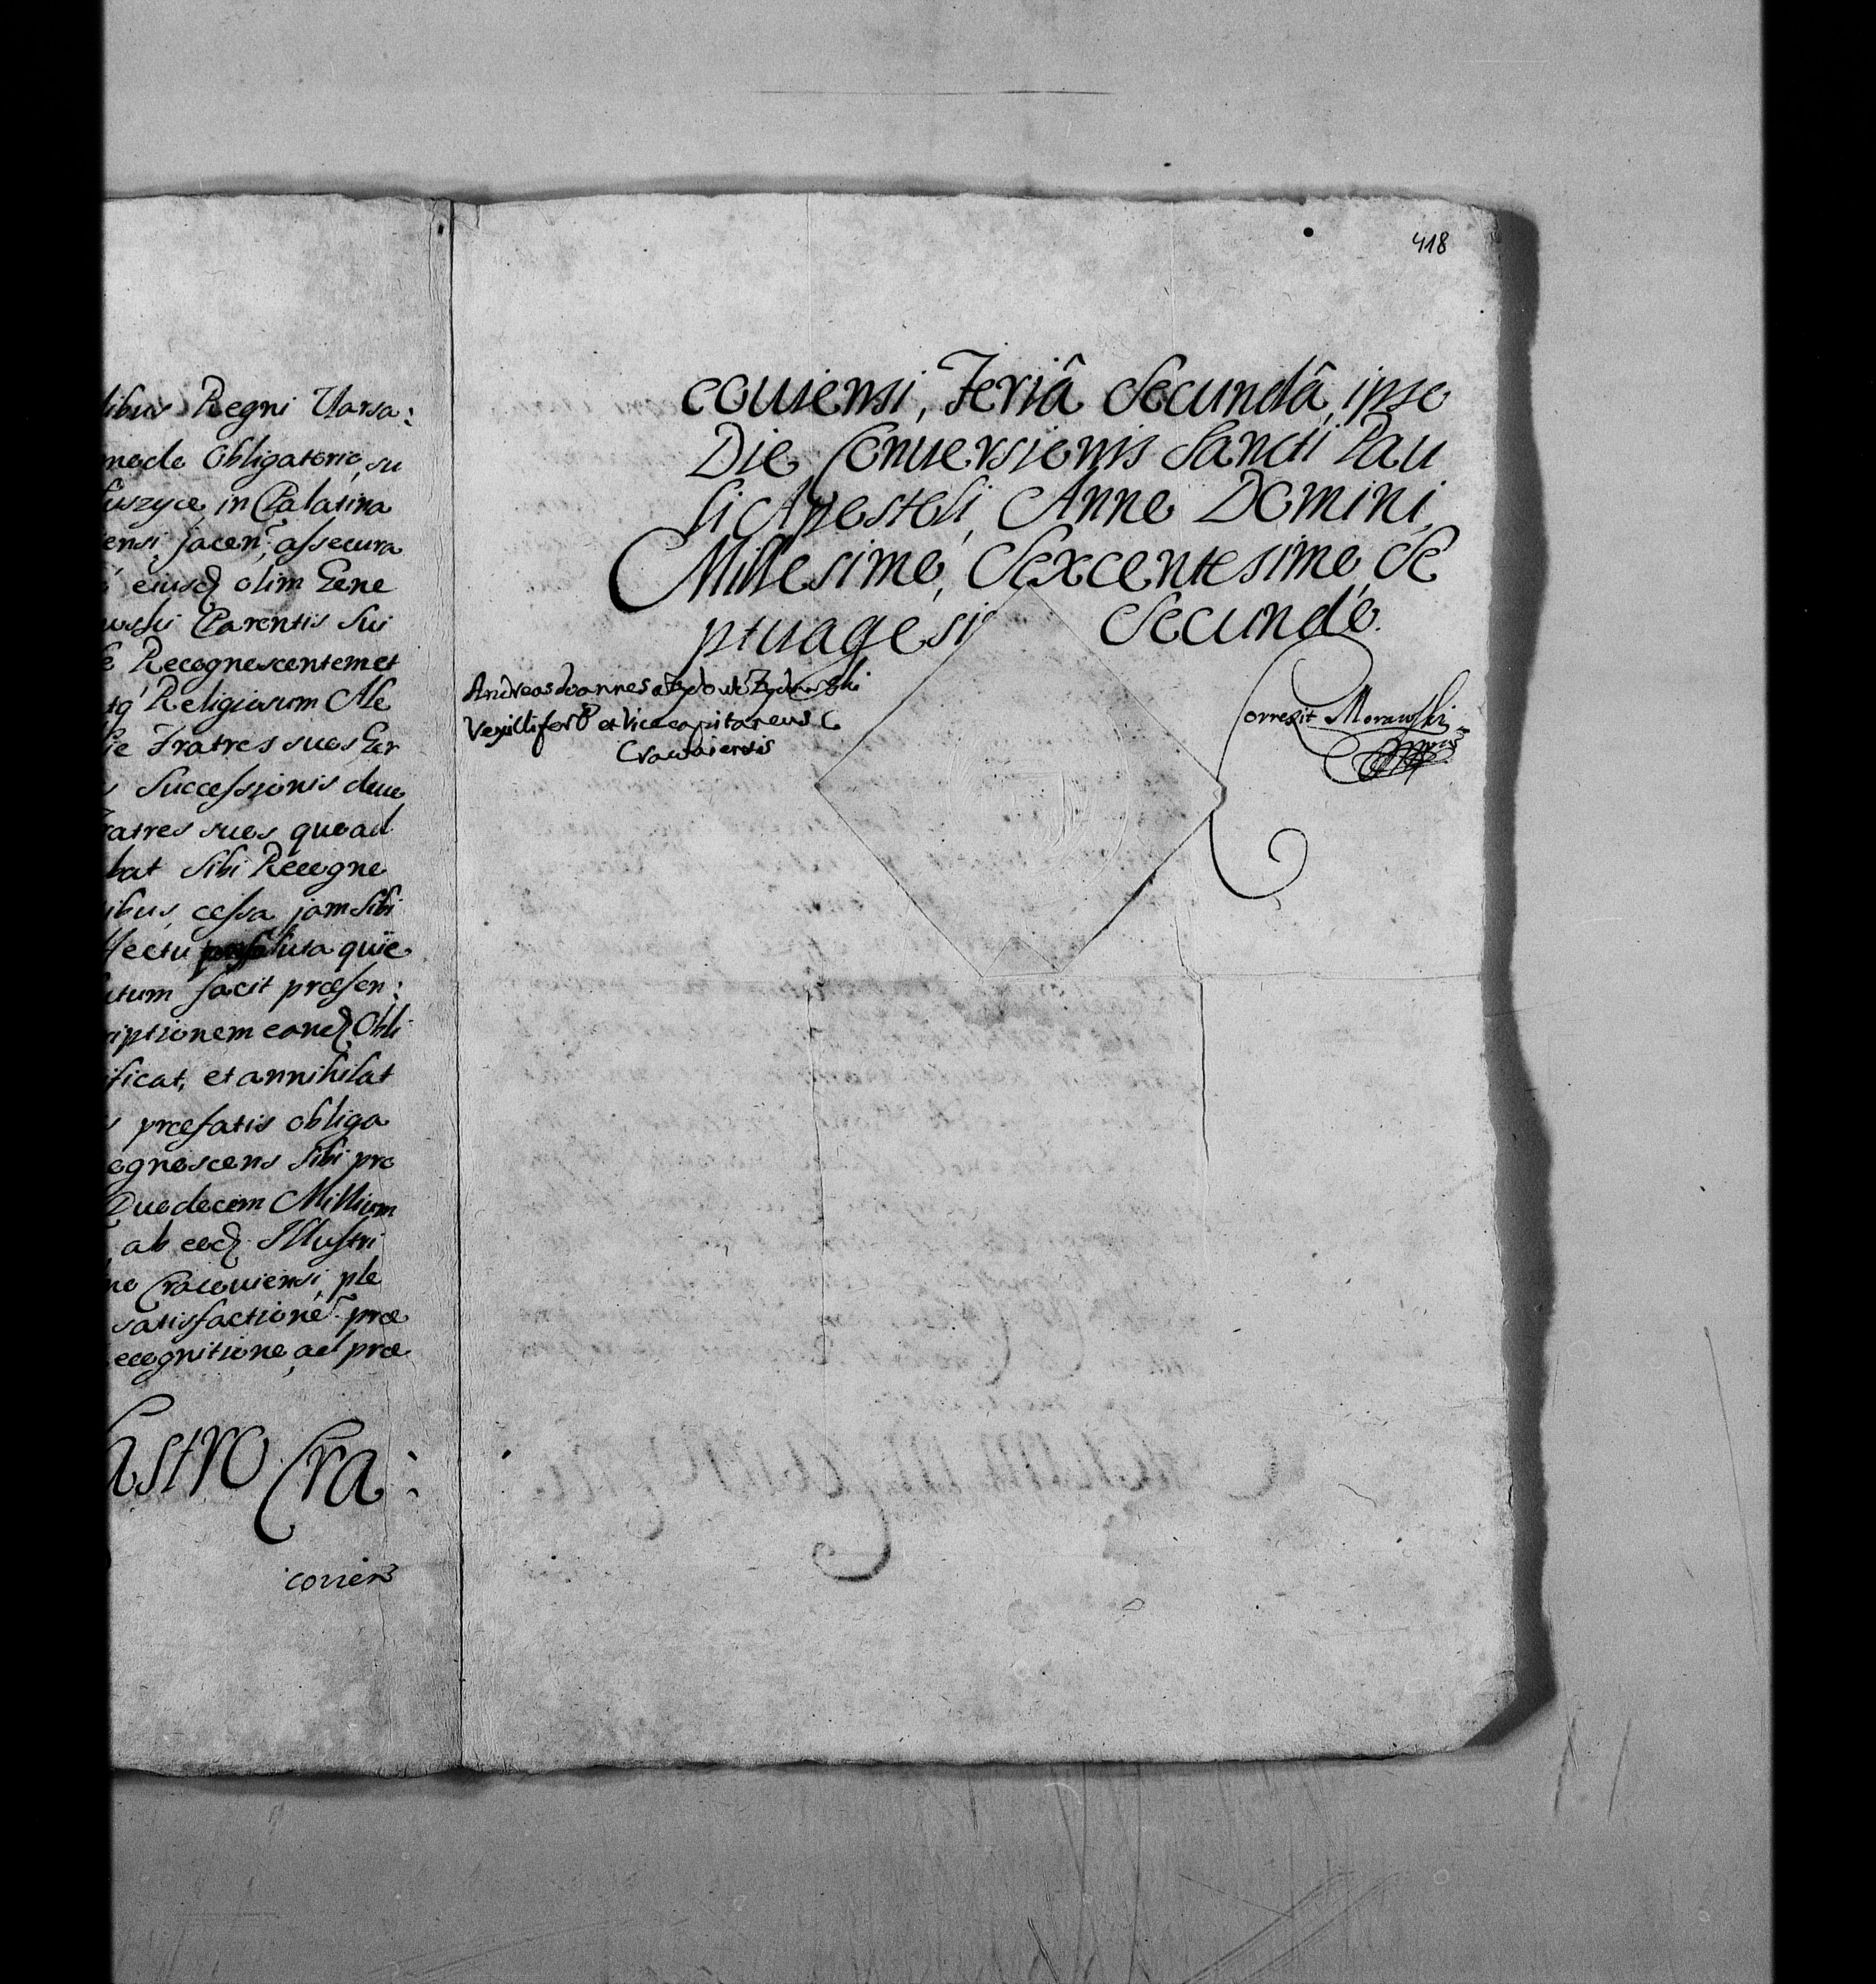 libus Regni Varsa:
modo Obligatorio su
in Palatina
ensi jacen assecura
eiusd olim Gene
wski Parentis Sui
Recognoscentem et
Religiosum Ale
Fratres suos Ger
Successionis deuo
ratres suos quoad
bat Sibi Recogno
ibus cessa jam Sibi
luta quie
tum facit præsen:
riptionem eand Obli
ificat, et annihilat
præfatis obliga
ognoscens Sibi pro
Duodecem Millium
ab eod Illustri
no Cracouiensi ple
satisfactione præ
ecognitione ad præ
astro Cra:
couien
418
couiensi, Feriâ Secundâ ipso
Die Conuersionis Sancti Pau
li Apostoli, Anno Domini
Millesimo, Sexcentesimo Se
ptuagesi Secundo.
Andreas Joannes a Zydow Zydowski
Vexillifer et Vicecapitaneus
Cracouiensis
Correxit Morawski